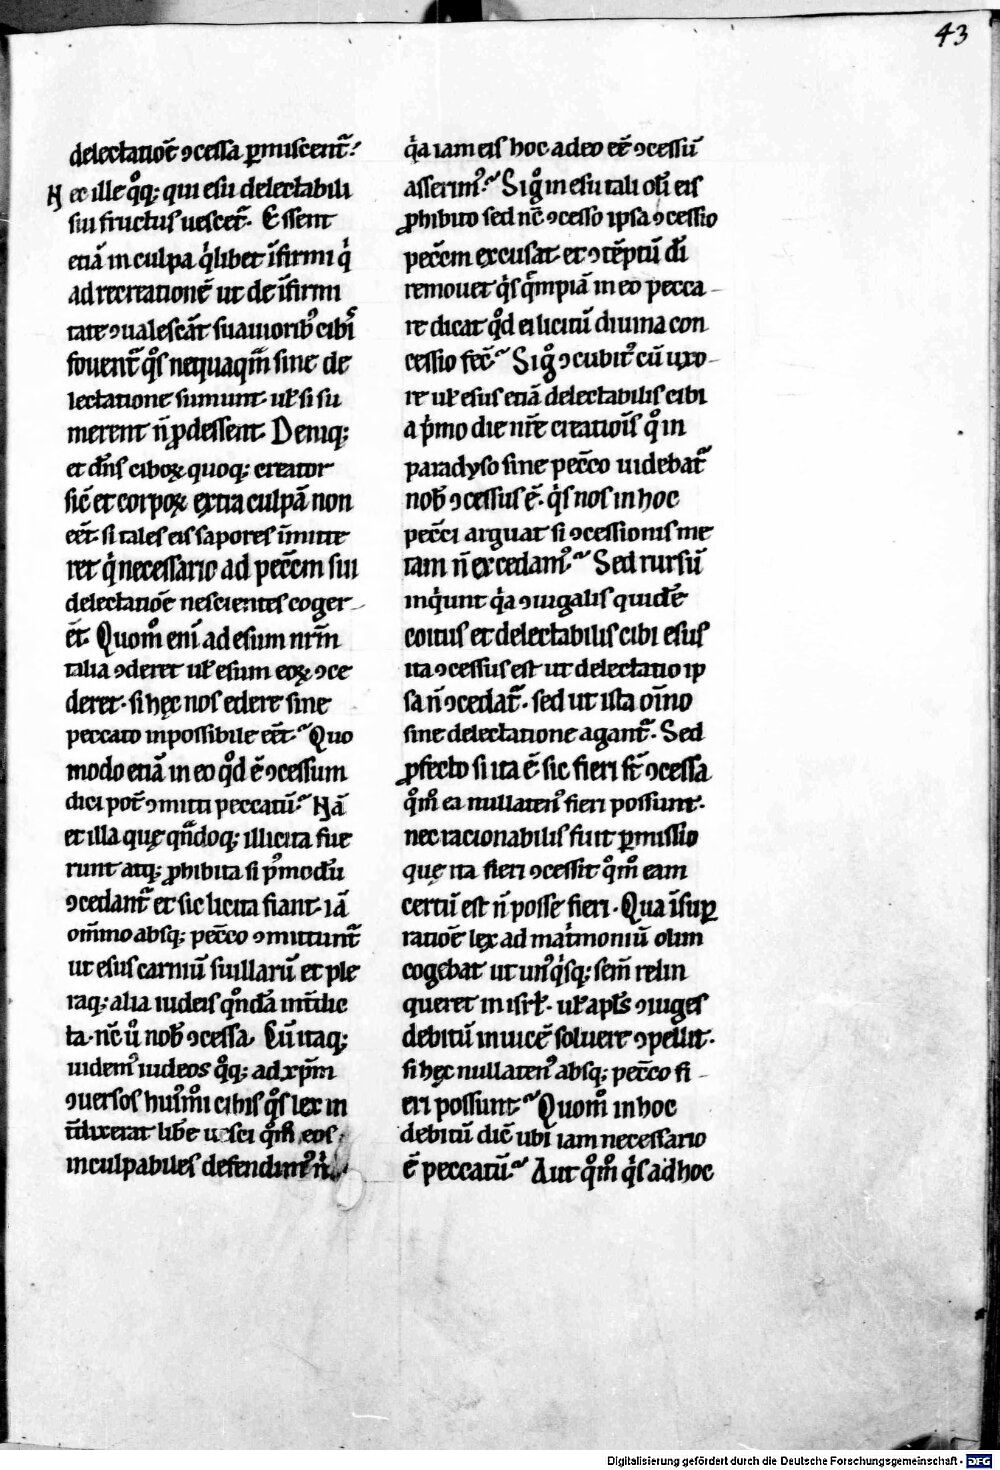 43
delectatiōe ꝯcessa ꝑmiscent᷑.
Nec ille qͦq; qui esu delectabili
sui fructus uescet᷑. Essent
etiā in culpa qͥlibet īfirmi qͥ
ad recreationē ut de īfirmi
tate ꝯualescāt suauiorib᷒ cibi᷒
fouent᷑ qͦs nequaqͣm sine de
lectatione sumunt. uł si su
merent n̄ ꝓdessent. Deniq;
et dn̄s ciboꝝ quoq; creator
sic̄ et corpoꝝ extra culpā non
eēt. si tales eis sapores īmitte
ret qͥ necessario ad pecc̄m sui
delectatiōe nescientes coger
ēt. Quom̊ eni ad esum nr̄m
talia ꝯderet uł esum eoꝝ ꝯce
deret. si hęc nos edere sine
peccato inpossibile eēt. Quo
modo etiā in eo qͦd ē ꝯcessum
dici pot̄ ꝯmitti peccatū. Nā
et illa quę qn̄doq; illicita fue
runt atq; ꝓhibita si p᷒modū
ꝯcedant᷑ et sic licita fiant. iā
om̄ino absq; pecc̄o ꝯmittunt᷑
ut esus carniū suillarū et ple
raq; alia iudeis qͦndā int̄dic
ta. nc̄ ů nob̄ ꝯcessa. Cū itaq;
uidem᷒ iudeos qͦq; ad xp̄m
ꝯuersos hui᷒m̊i cibis qͦs lex in
t̄dixerat libe uesci qͦm̊ eos
inculpabiles defendim᷒ n̊
qͥa iam eis hoc a deo eē ꝯcessū
asserim᷒. Sigͦ in esu tali oli eis
ꝓhibito sed nc̄ ꝯcesso ipsa ꝯcessio
pecc̄m excusat. et ꝯtēptū di
remouet qͥs qͣmpiā in eo pecca
re dicat qͦd ei licitū diuina con
cessio fec̄. Sigͦ ꝯcubit᷒ cū uxo
re uł esus etiā delectabilis cibi
a pͥmo die nr̄e creatiōis qͦ in
paradyso sine pecc̄o uidebat᷑
nob̄ ꝯcessus ē. qͥs nos in hoc
pecc̄i arguat si ꝯcessionis me
tam n̄ excedam᷒. Sed rursū
inqͥunt qͥa ꝯiugalis quidē
coitus et delectabilis cibi esus
ita ꝯcessus est ut delectatio ip
sa n̄ ꝯcedat᷑. sed ut ista oīno
sine delectatione agant᷑. Sed
ꝓfecto si ita ē sic fieri st̄ ꝯcessa
qͦm̊ ea nullaten᷒ fieri possunt.
nec racionabilis fuit ꝑmissio
quę ita fieri ꝯcessit qͦm̊ eam
certū est n̄ posse fieri. Qua īsuꝑ
ratiōe lex ad mat̓moniū olim
cogebat ut un᷒qͥsq; sem̄ relin
queret in isrł. uł apl̄s ꝯiuges
debitū inuicē soluere ꝯpellit.
si hęc nullaten᷒ absq; pecc̄o fi
eri possunt. Quom̊ in hoc
debitū dic̄ ubi iam necessario
ē peccatū. Aut qͦm̊ qͥs ad hoc
Digitalisierung gefördert durch die Deutsche Forschungsgemeinschaft - DFG